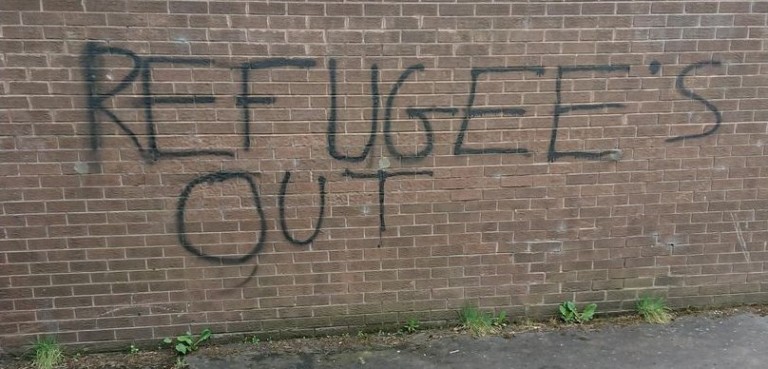 REFUGEE'S
OUT